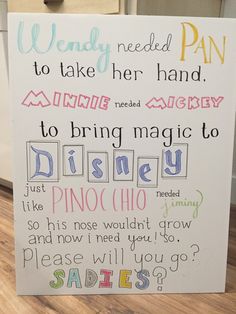 Wendy needed PAN
to take her hand.
MINNIE needed MICKEY
to bring magic to
Disney
just like PINOCCHIO needed jiminy
so his nose wouldn't grow
and now i need you! so.
Please will you go?
SADIES?